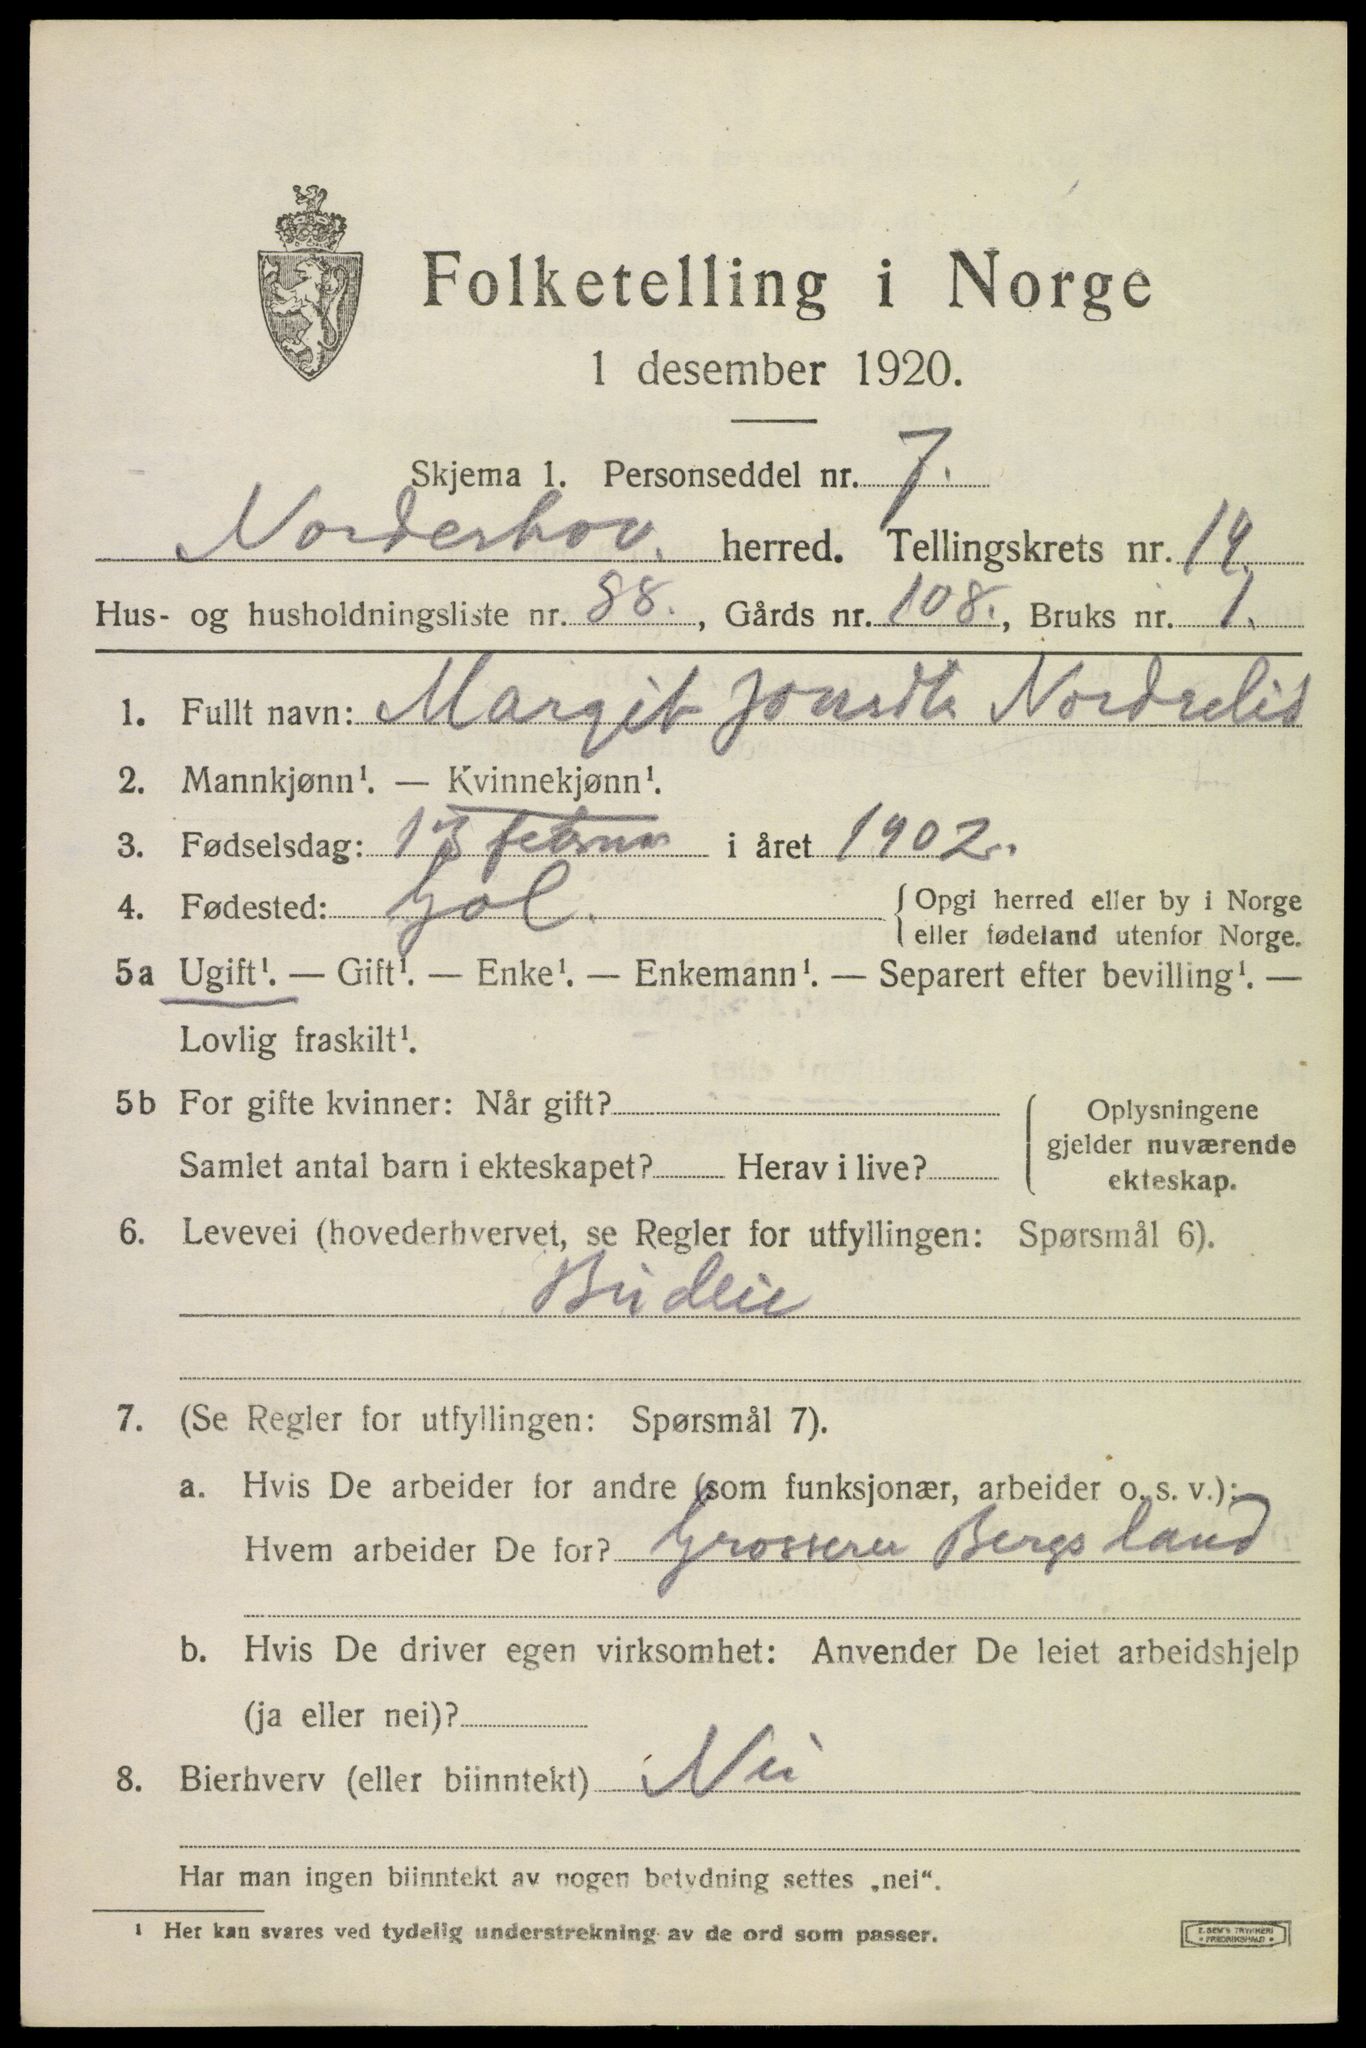 Folketelling i Norge
1 desember 1920.
Skjema 1. Personseddel nr. 7.
Norderhov. herred. Tellingskrets nr. 14.
Hus- og husholdningsliste nr. 88., Gårds nr. 108., Bruks nr. 1.
1. Fullt navn: Margit Jonsdtr Nordrelid
2. Mannkjønn¹. — Kvinnekjønn¹.
3. Fødselsdag: februar i året 1902.
4. Fødested: Gol. { Opgi herred eller by i Norge
eller fødeland utenfor Norge.
5a Ugift¹. — Gift¹. — Enke¹. — Enkemann¹. — Separert efter bevilling¹. —
Lovlig fraskilt¹.
5b For gifte kvinner: Når gift?
Samlet antal barn i ekteskapet? Herav i live?
{ Oplysningene
gjelder nuværende
ekteskap.
6. Levevei (hovederhvervet, se Regler for utfyllingen: Spørsmål 6).
Budeie
7. (Se Regler for utfyllingen: Spørsmål 7).
a. Hvis De arbeider for andre (som funksjonær, arbeider o. s. v.):
Hvem arbeider De for? Grosserer Bergsland
b. Hvis De driver egen virksomhet: Anvender De leiet arbeidshjelp
(ja eller nei)?
8. Bierhverv (eller biinntekt) Nei
Har man ingen biinntekt av nogen betydning settes „nei“.
¹ Her kan svares ved tydelig understrekning av de ord som passer.
E. SEM'S TRYKKERI
FREDRIKSHALD